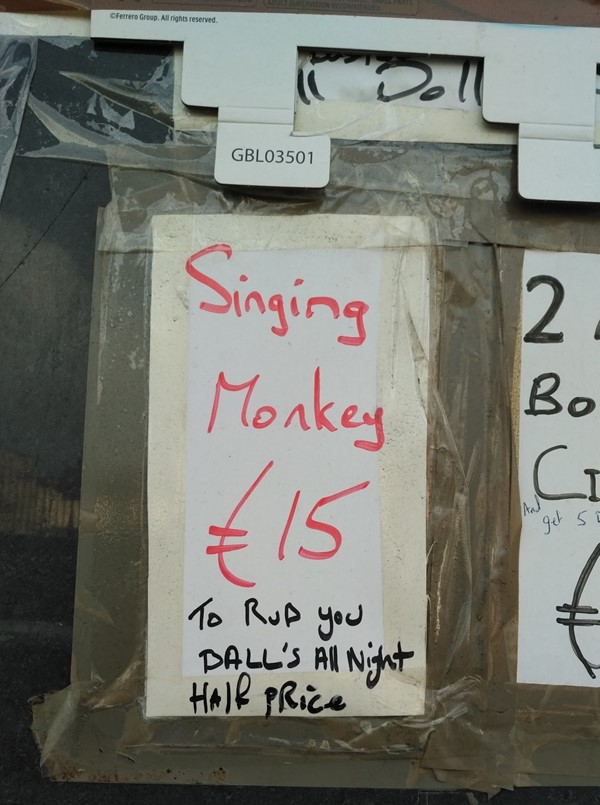 ©Ferrero Group. All rights reserved.
Doll
GBL03501
Singing
Monkey
€15
To RUB you
BALL'S All Night
HAlf PRice
2
Bo
And
get 5
€